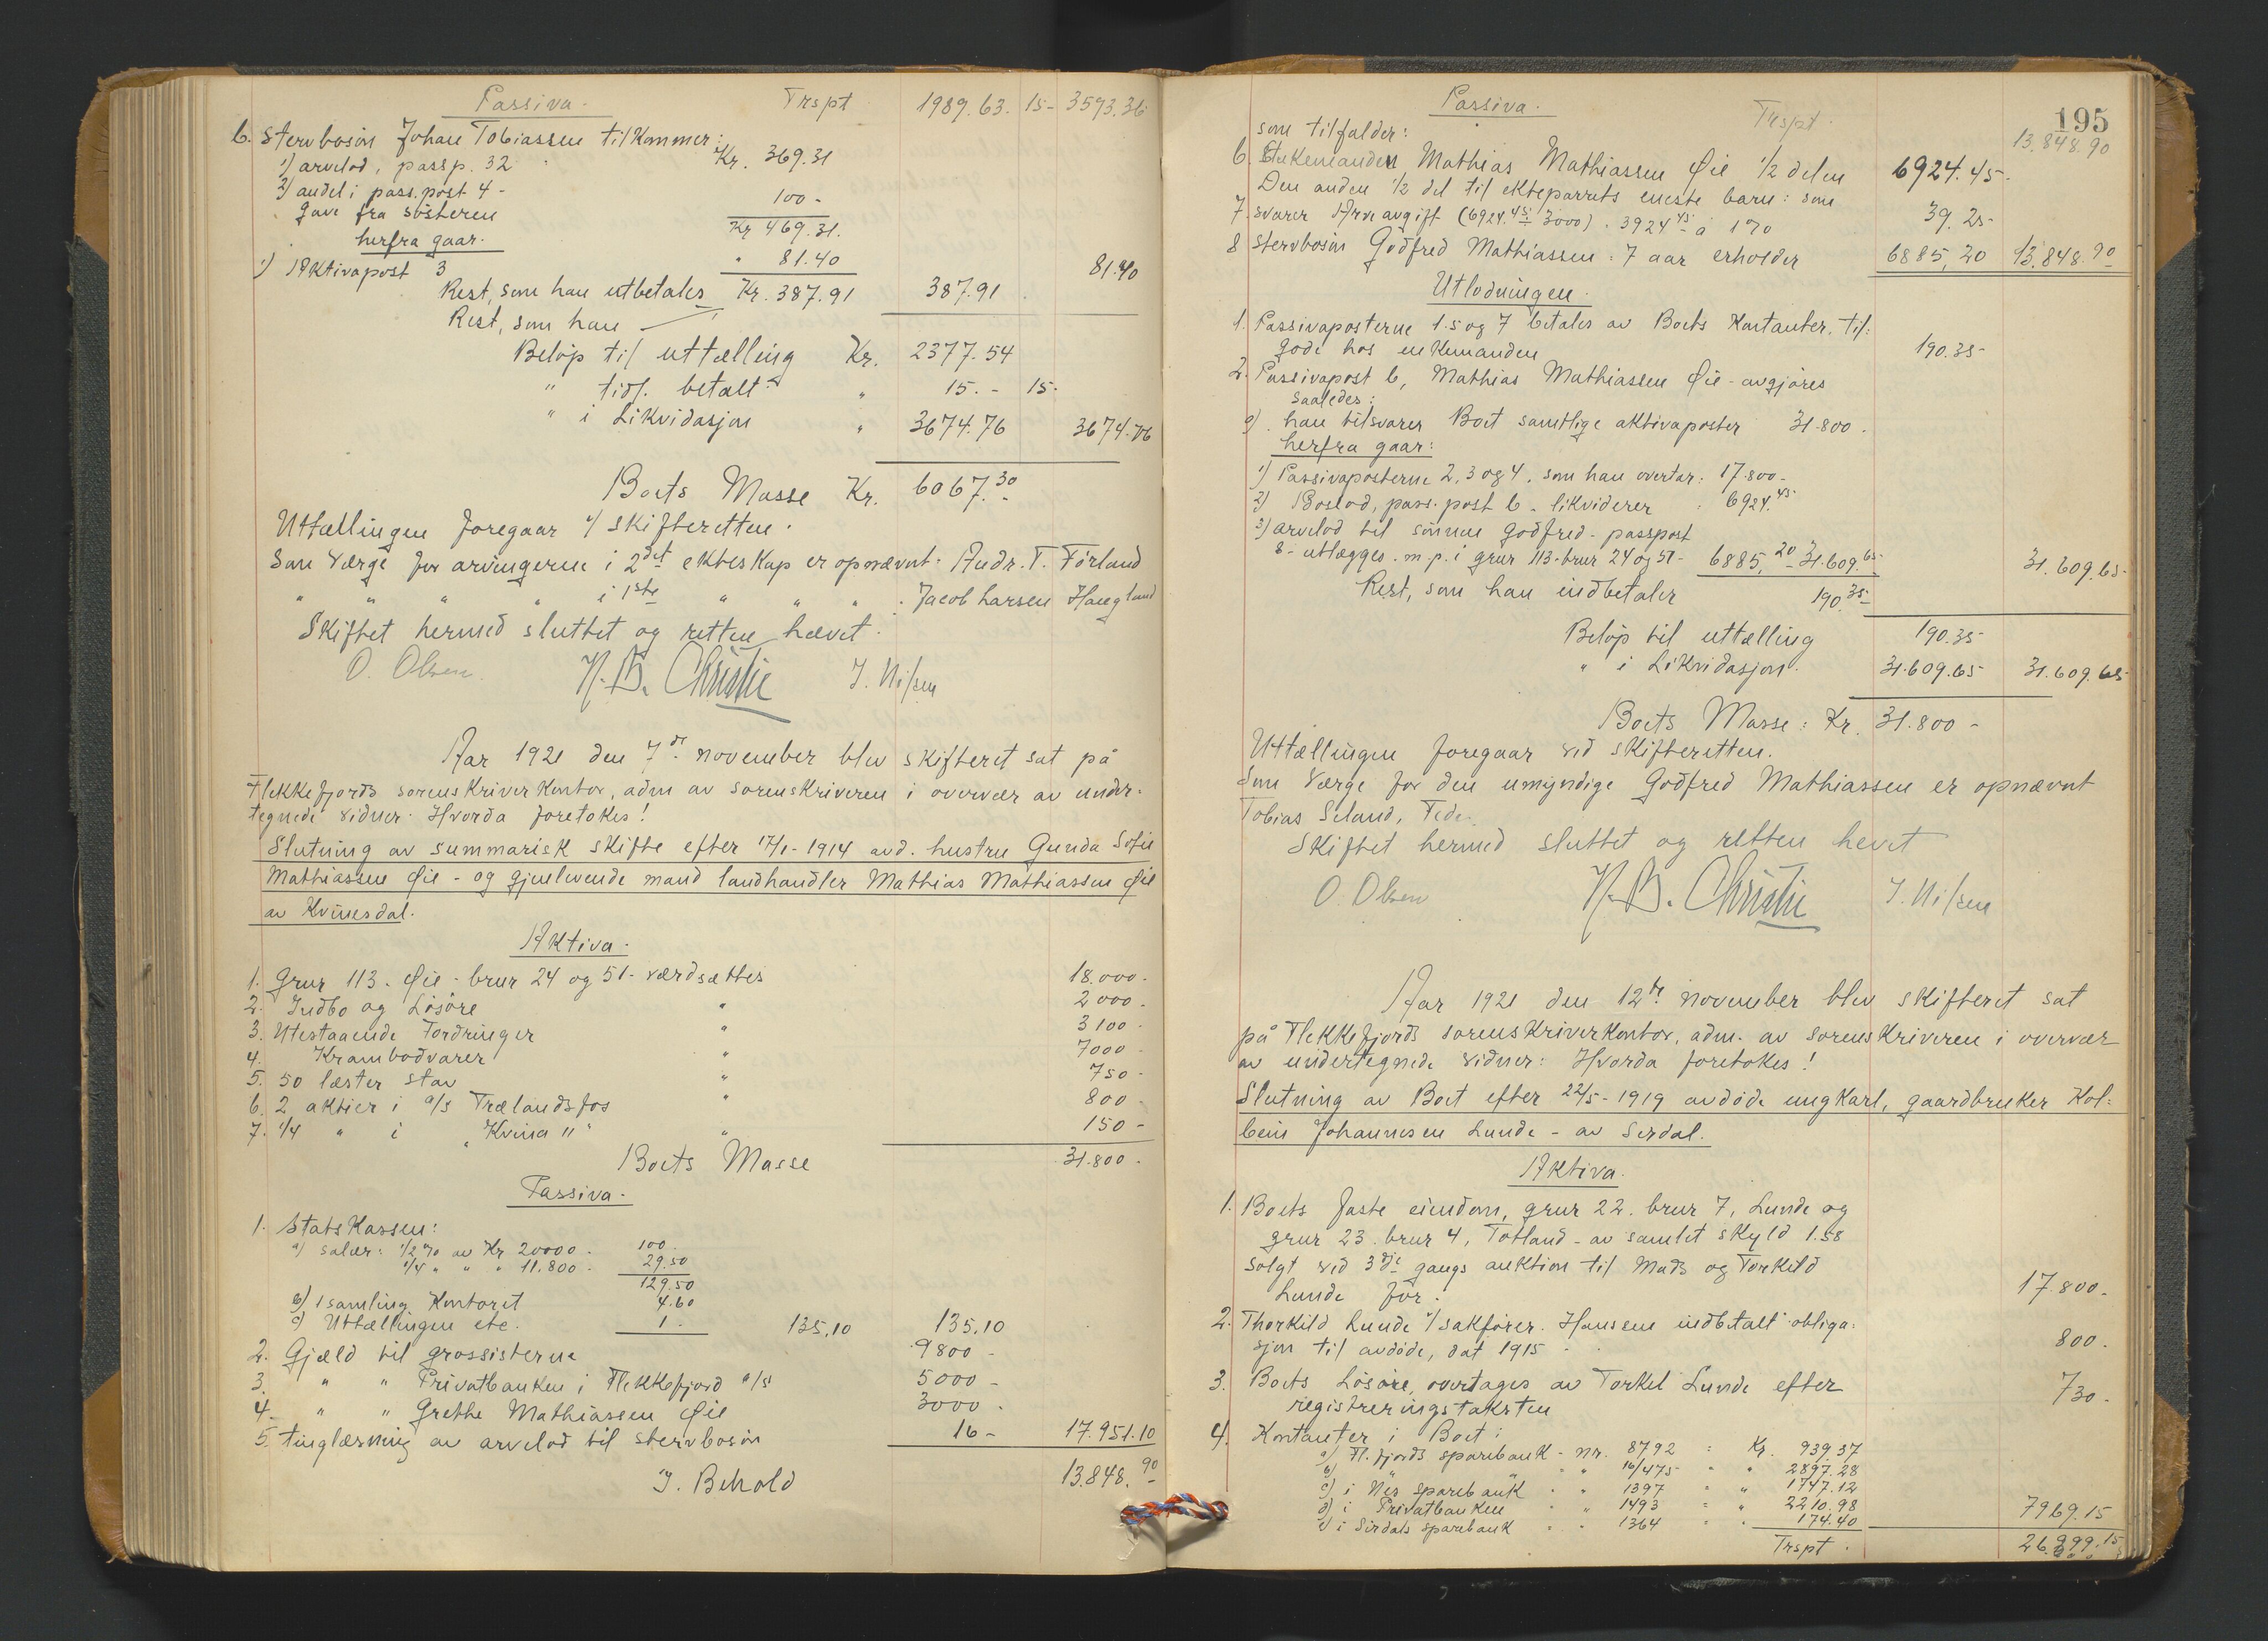 Passiva. Trspt 1989.63. 15- 3593.36
6. Stervbosøn Johan Tobiassen tilkommer:
1) arvelod, passp. 32 Kr. 369.31
2) andel i pass. post 4 -
gave fra søsteren 100 -
Kr 469.31.
herfra gaar.
1) Aktivapost 3 " 81.40 81.40
Rest, som han utbetales Kr. 387.91 387.91
Rest, som han
Beløp til uttælling Kr. 2377.54
" tidl. betalt " 15.- 15-
" i Likvidasjon " 3674.76 3674.76
Boets Masse Kr. 6067.30
Uttællingen foregaar v/ skifteretten.
Som Værge for arvingerne i 2det ekteskap er opnævnt. Andr. T. Førland
" " " " i 1ste " " " : Jacob Larsen Haugland
Skiftet hermed sluttet og retten hævet.
O. Olsen. N. B. Christie J. Nilsen
Aar 1921 den 7de november blev skifteret sat på
Flekkefjords sorenskriverkontor, adm av sorenskriveren i overvær av under-
tegnede vidner. Hvorda foretokes!
Slutning av summarisk skifte efter 17/1-1914 avd. hustru Gunda Sofie
Mathiassen Øie - og gjenlevende mand landhandler Mathias Mathiassen Øie
av Kvinesdal.
Aktiva.
1. Grnr 113. Øie - brnr 24 og 51 - værdsættes 18.000-
2. Indbo og Løsøre " 2000.
3. Utestaaende Fordringer " 3100.
4. Krambodvarer " 7000 -
5. 50 læster stav " 750 -
6. 2 aktier i a/s Trælandsfos " 800 -
7. 1/4 " i " Kvina " " 150 -
Boets Masse 31.800 -
Passiva.
1. Statskassen:
a) salær: 1/2 % av Kr 20000 - 100.
1/4 " " " 11.800 - 29.50
129.50
b) 1 samling Kontoret 4.60
c) Uttællingen etc. 1. 135,10 135,10
2. Gjæld til grossisterne 9800 -
3. " " Privatbanken i Flekkefjord a/s 5000 -
4. " " Grethe Mathiassen Øie 3000 -
5. tinglæsning av arvelod til stervbosøn 16 - 17.951.10
I. Behold 13.848.90
195
Passiva. Trspt. 13.848.90
som tilfalder:
6. Enkemanden Mathias Mathiassen Øie 1/2 delen 6924.45.
Den anden 1/2 del til ekteparrets eneste barn: som
7. svarer Arveavgift (6924.45 - 3000). 3924.45 à 1 % 39.25
8 stervbosøn Godfred Mathiassen: 7 aar erholder 6885,20 13.848.90
Utlodningen.
1. Passivaposterne 1.5 og 7 betales av Boets Kontanter, til-
gode hos enkemanden 190.35
2. Passivapost 6, Mathias Mathiassen Øie - avgjøres
saaledes:
a). han tilsvarer Boet samtlige aktivaposter 31.800.
herfra gaar:
1) Passivaposterne 2, 3 og 4, som han overtar: 17.800-
2) Boslod, pass. post 6 - likviderer : 6924.45
3) arvelod til sønnen Godfred - passpost
8 - utlægges m. p. i grnr 113 - brnr 24 og 51 - 6885,20 31.609.65 31.609.65
Rest, som han indbetaler 190.35
Beløp til uttælling 190.35
" i Likvidasjon. 31.609.65 31.609.65
Boets Masse: Kr. 31.800 -
Uttællingen foregaar ved skifteretten.
Som Værge for den umyndige Godfred Mathiassen er opnævnt
Tobias Seland, Fede.
Skiftet hermed sluttet og retten hevet
O. Olsen N. B. Christie J. Nilsen
Aar 1921 den 12te november blev skifteret sat
på Flekkefjords sorenskriverkontor, adm. av sorenskriveren i overvær
av undertegnede vidner: Hvorda foretokes!
Slutning av Boet efter 22/5-1919 avdøde ungkarl, gaardbruker Kol-
bein Johannesen Lunde - av Sirdal.
Aktiva.
1. Boets faste eiendom, grnr 22. brnr 7, Lunde og
grnr 23. brnr 4, Totland - av samlet skyld 1.58
solgt ved 3dje gangs auktion til Mads og Torkild
Lunde for. 17.800-
2. Thorkild Lunde v/ sakfører. Hansen indbetalt obliga-
sjon til avdøde, dat 1915 800.
3. Boets Løsøre, overtages av Torkel Lunde efter
registreringstaksten 730 -
4. Kontanter i Boet:
a) Fl.fjords sparebank - nr. 8792 = Kr. 939.37
b) " " " " 16/475 " " 2897.28
c) i Nes sparebank " " 1397 = " 1747.12
d) i Privatbanken " " 1493 = " 2210.98
e) i Sirdals sparebank " " 1364 = " 174.40 7969.15
Trspt. 26.999.15